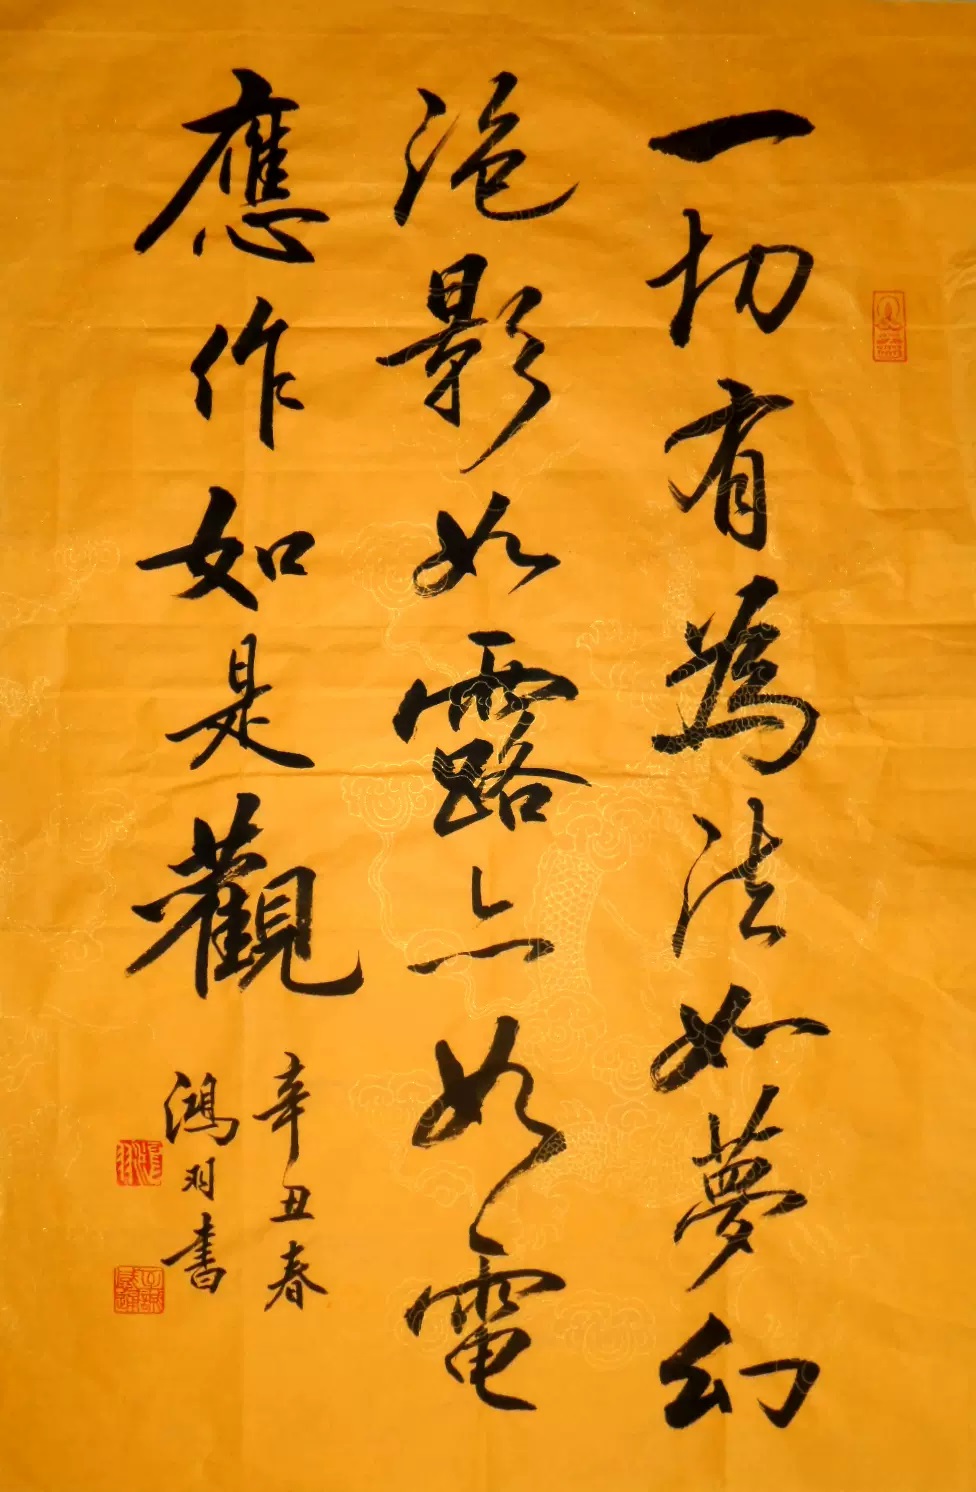 一切有為法如夢幻
泡影如露亦如電
應作如是觀
辛丑春
鴻羽書